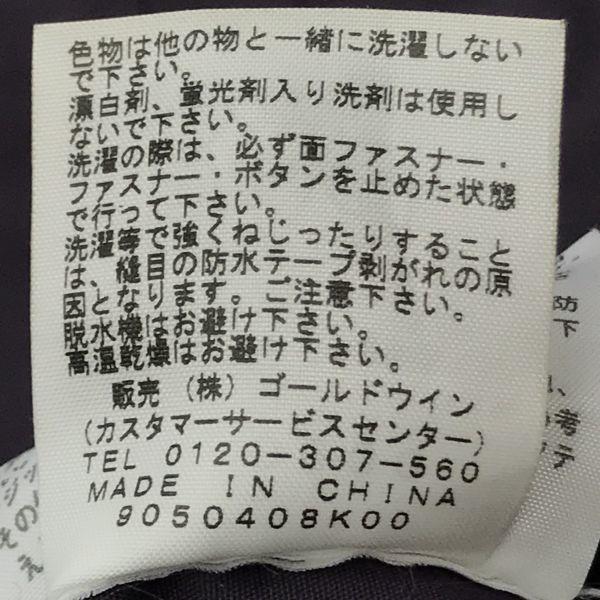 色物は他の物と一緒に洗濯しない
で下さい。
漂白剤、蛍光剤入り洗剤は使用し
ないで下さい。
洗濯の際は、必ず面ファスナー・
ファスナー・ボタンを止めた状態
で行って下さい。
洗濯等で強くねじったりすること
は、縫目の防水テープ剥がれの原
因となります。ご注意下さい。
脱水機はお避け下さい。
高温乾燥はお避け下さい。
販売（株）ゴールドウイン
(カスタマーサービスセンター)
TEL 0120-307-560
MADE IN CHINA
9050408K00
防
下
考
テ
その
え